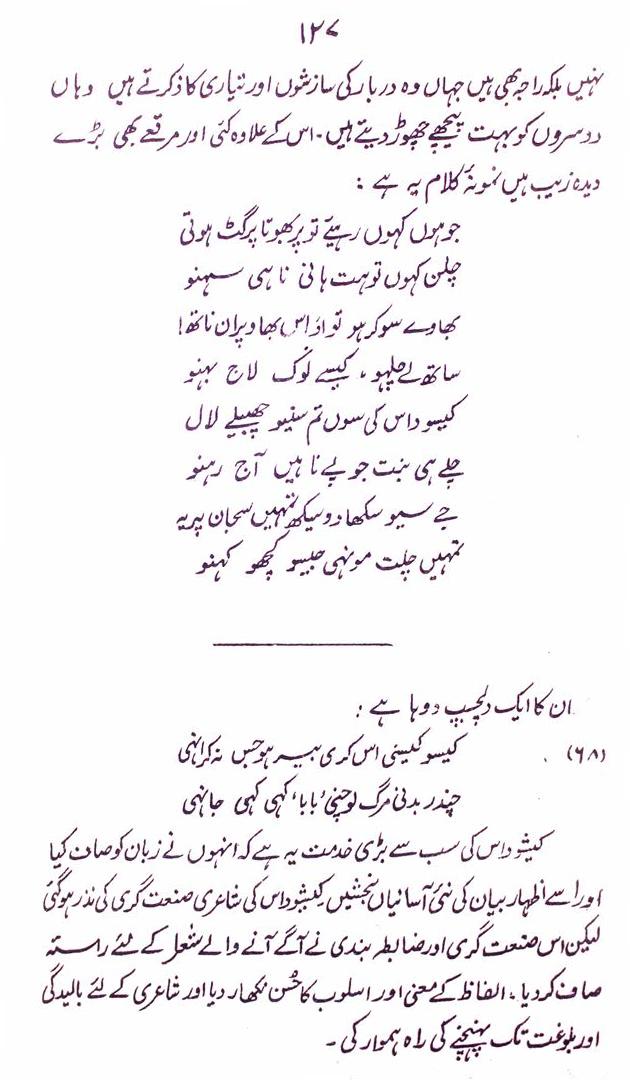 ۱۲۷
نہیں بلکہ راجہ بھی ہیں جہاں وہ دربار کی سازشوں اور تیاری کا ذکر کرتے ہیں وہاں
دوسروں کو بہت پیچھے چھوڑ دیتے ہیں۔ اس کے علاوہ کئی اور مرقعے بھی بڑے
دیدہ زیب ہیں نمونۂ کلام یہ ہے :
جو ہوں کہوں رہیئے تو پربھوتا پرگٹ ہوتی
چلن کہوں تو ہت ہانی ناہی سہنو
بھاوے سو کرہو تو اداس بھاو پران ناتھ!
ساتھ لے چلہو، کیسے لوک لاج بہنو
کیسو داس کی سوں تم سنیو چھبیلے لال
چلے ہی بنت جو پے ناہیں آج رہنو
جے سیو سکھا دو سیکھ تمہیں سجان پریہ
تمہیں چلت مونہی جیسو کچھو کہنو
ان کا ایک دلچسپ دوہا ہے :
(۶۸) کیسو کیسنی اس کری بیر ہو جس نہ کراہنی
چندر بدنی مرگ لوچنی 'بابا' کہی کہی جانہی
کیشو داس کی سب سے بڑی خدمت یہ ہے کہ انہوں نے زبان کو صاف کیا
اور اسے اظہار بیان کی نئی آسانیاں بخشیں۔ کیشو داس کی شاعری صنعت گری کی نذر ہو گئی
لیکن اس صنعت گری اور ضابطہ بندی نے آگے آنے والے شعرا کے لئے راستہ
صاف کر دیا۔ الفاظ کے معنی اور اسلوب کا حُسن نکھار دیا اور شاعری کے لئے بالیدگی
اور بلوغت تک پہنچنے کی راہ ہموار کی۔